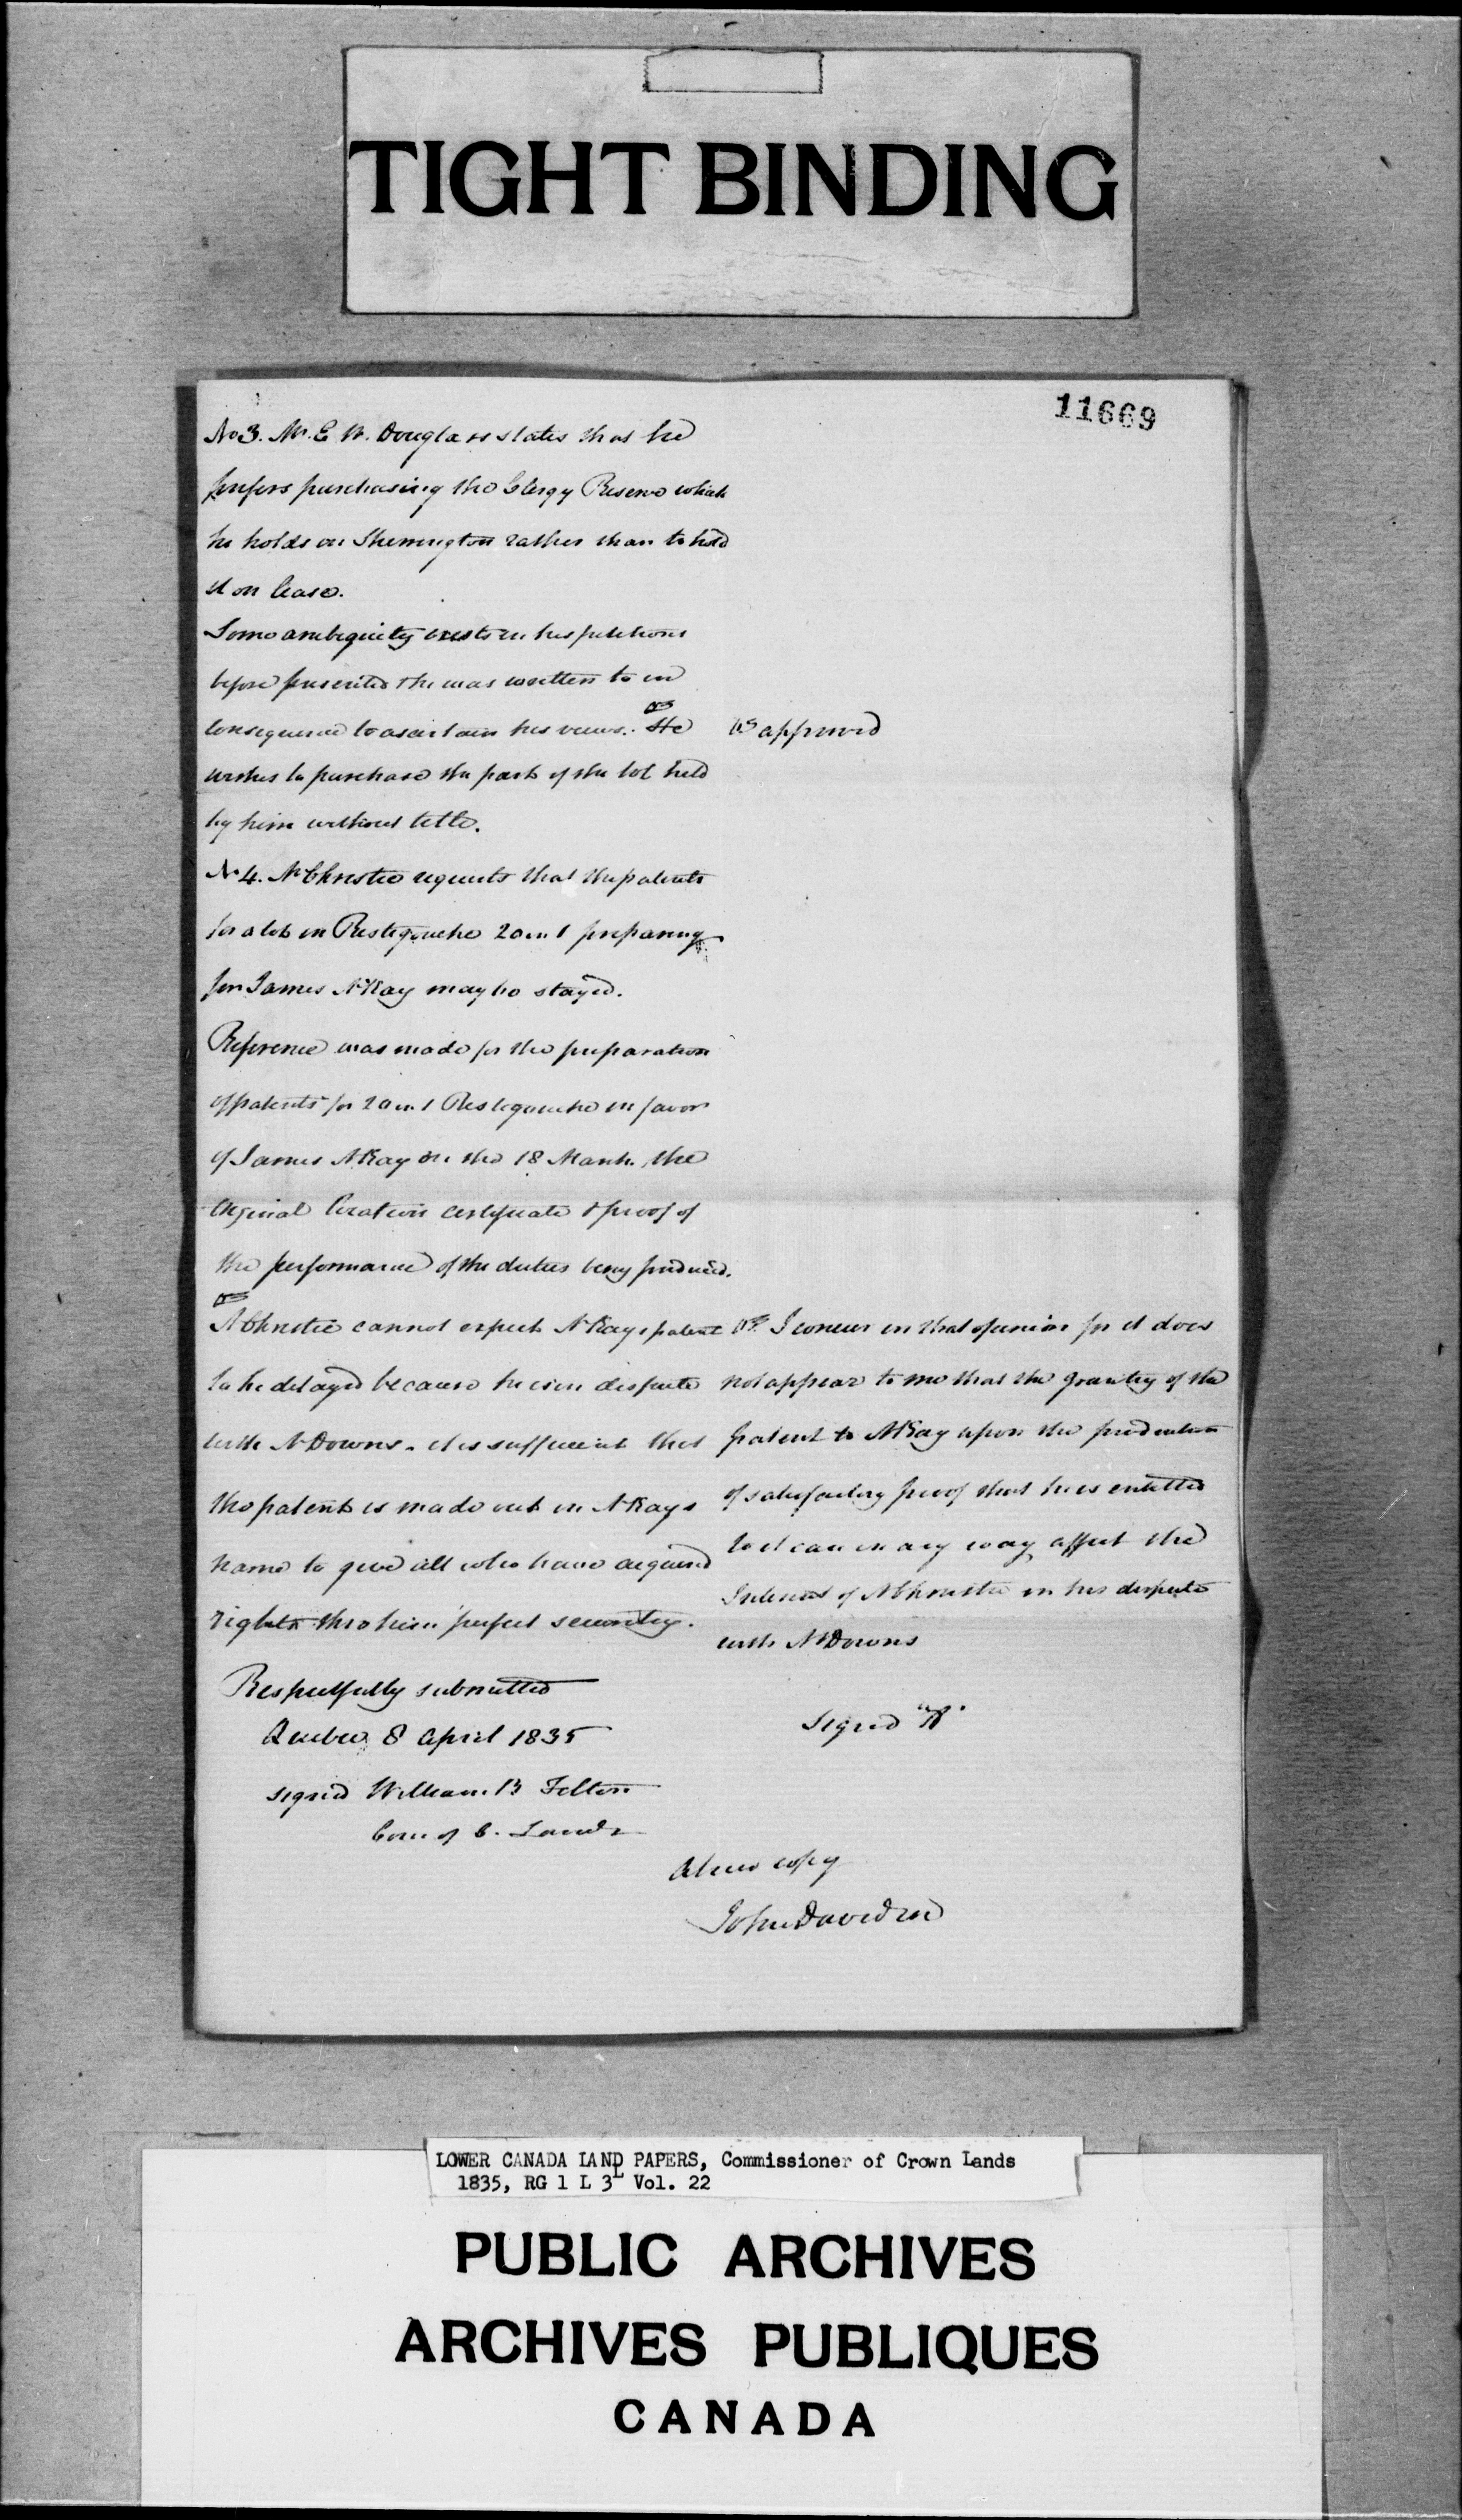 TIGHT BINDING
11669
No 3. Mr. E W. Douglass states that he
prefers purchasing the Clergy Reserve which
he holds in Sherrington rather than to hold
it on lease.
Some ambiguity exists in his petitions
before presented & he was written to in
consequence to ascertain his views. He
wishes to purchase the part of the lot held
by him without title.
approved
No 4. Mr Christie requests that the patents
for a lot in Restigouche 20 in 1 preparing
for James McKay may be stayed.
Reference was made for the preparation
of patents for 20 in 1 Restigouche in favor
of James McKay on the 18 March, the
Original location certificate & proof of
the performance of the duties being produced.
Mr Christie cannot expect McKays patent
to be delayed because he is in dispute
with Mr Downs. it is sufficient that
the patent is made out in McKays
name to give all who have acquired
rights thro him perfect security.
I concur in that opinion for it does
not appear to me that the granting of the
patent to McKay upon the production
of satisfactory proof that he is entitled
to it can in any way affect the
Interest of Mr Christie in his dispute
with Mr Downs
Respectfully submitted
Quebec 8 April 1835
signed William B Felton
Com of C. Lands
signed "A"
A true copy
John Davidson
LOWER CANADA LAND PAPERS, Commissioner of Crown Lands
1835, RG 1 L 3L Vol. 22
PUBLIC ARCHIVES
ARCHIVES PUBLIQUES
CANADA